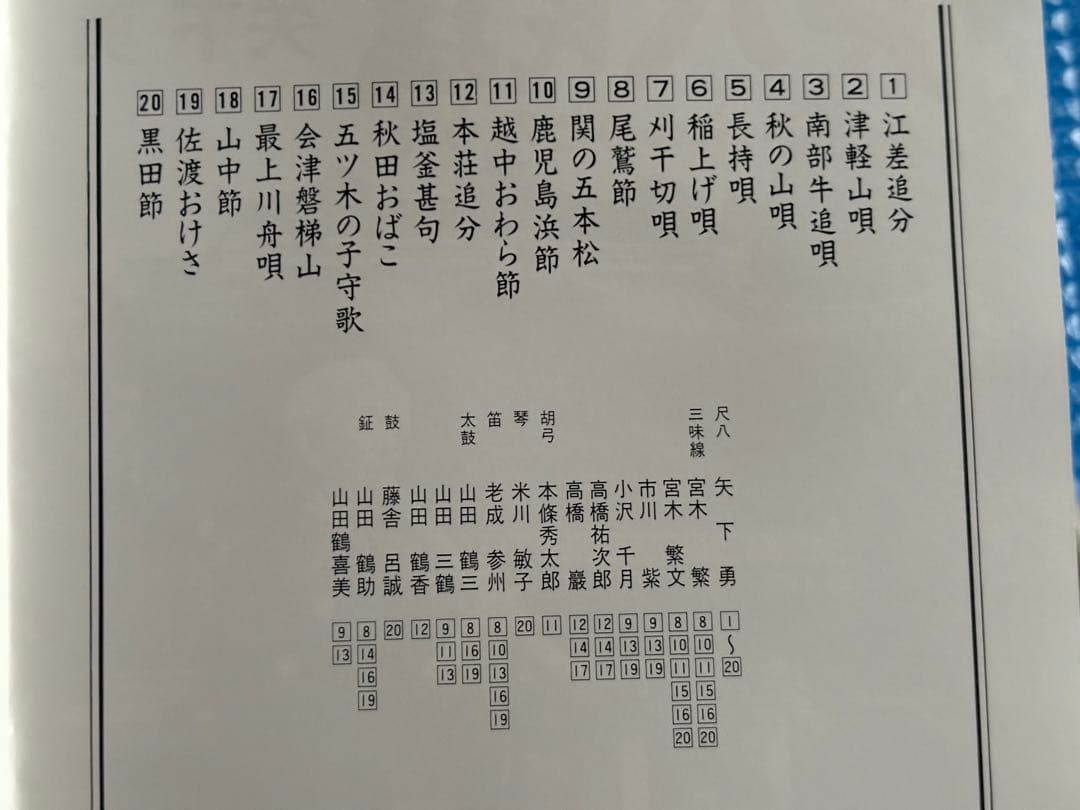 1 江差追分
2 津軽山唄
3 南部牛追唄
4 秋の山唄
5 長持唄
6 稲上げ唄
7 刈干切唄
8 尾鷲節
9 関の五本松
10 鹿児島浜節
11 越中おわら節
12 本荘追分
13 塩釜甚句
14 秋田おばこ
15 五ツ木の子守歌
16 会津磐梯山
17 最上川舟唄
18 山中節
19 佐渡おけさ
20 黒田節
尺八 矢下勇 1〜20
三味線 宮木繁 8 10 11 15 16 20
宮木繁文 8 10 11 15 16 20
市川紫 9 13 19
小沢千月 9 13 19
高橋祐次郎 12 14 17
高橋巖 12 14 17
胡弓 本條秀太郎 11
琴 米川敏子 20
笛 老成参州 8 10 13 16 19
太鼓 山田鶴三 8 16 19
山田三鶴 9 11 13
山田鶴香 12
鼓 藤舎呂誠 20
鉦 山田鶴助 8 14 16 19
山田鶴喜美 9 13